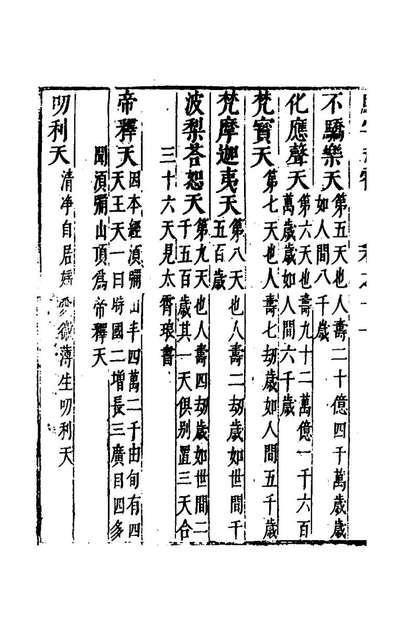 不驕樂天第五天也人壽二十億四千萬歲歲
如人間八千歲
化應聲天第六天也人壽九十二萬億一千六百
萬歲歲如人間六千歲
梵寶天第七天也人壽七劫歲如人間五千歲
梵摩迦夷天第八天也人壽二劫歲如世間千
五百歲
波梨荅恕天第九天也人壽四劫歲如世間二
千五百歲其一天俱别置三天合
三十六天見太霄琅書
帝釋天因本經湏彌山半四萬二千由旬有四
天王天一曰時國二增長三廣目四多
聞湏彌山頂爲帝釋天
忉利天清净自居婬欲微薄生忉利天